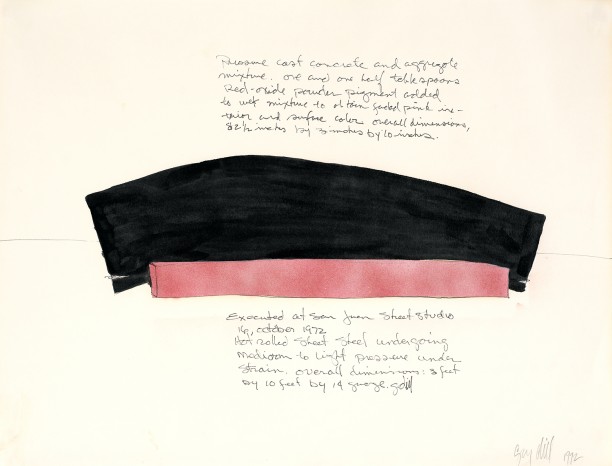 cast concrete and aggregate
mixture. one and one half tablespoons
Red-oxide powder pigment added
to wet mixture to obtain faded pink in-
terior and surface color overall dimensions,
82½ inches by 3 inches by 10 inches.
Executed at San Juan Street Studio
19, october 1972
Hot rolled Sheet Steel undergoing
medium to light pressure under
strain. overall dimensions: 3 feet
by 10 feet by 14 guage. gdill
Guy Dill 1972